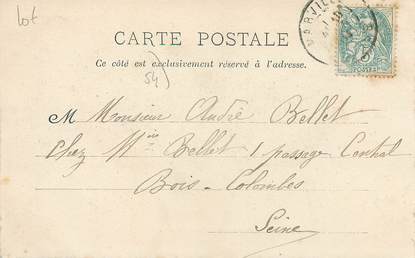 Lot
CARTE POSTALE
Ce côté est exclusivement réservé à l'adresse.
54)
M Monsieur André Bellet
Chez Mis Bellet 1 passage Central
Bois-Colombes
Seine